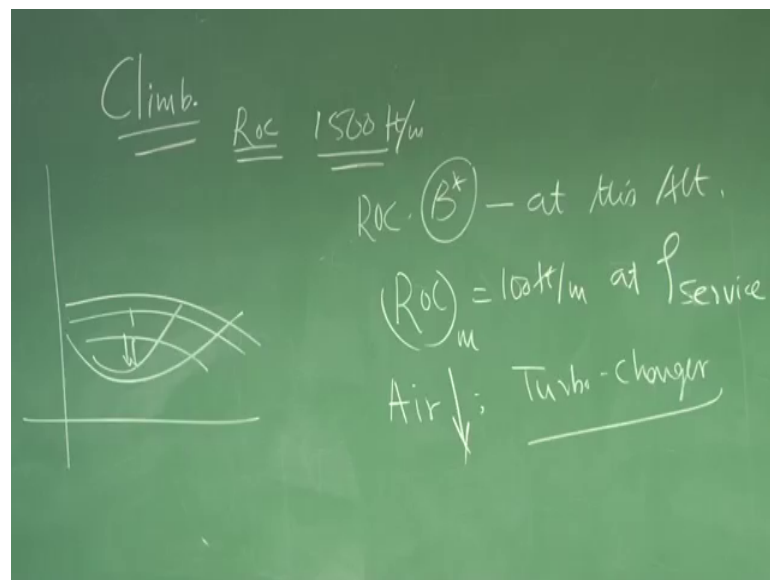 Climb.
Roc 1500 ft/m
Roc. B* - at this Alt.
(Roc)m = 100 ft/m at ρservice
Air ↓; Turbo-Charger